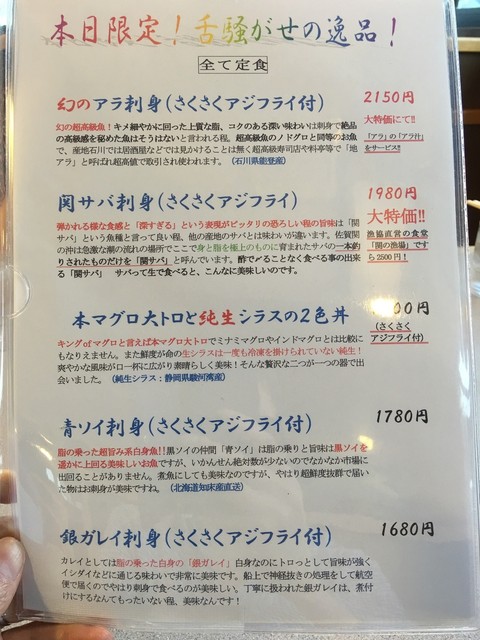 本日限定！舌騒がせの逸品！
全て定食
幻のアラ刺身（さくさくアジフライ付） 2150円
大特価にて!!
「アラ」の「アラ汁」
をサービス!!
幻の超高級魚！キメ細やかに回った上質な脂、コクのある深い味わいは刺身で絶品
の高級感を秘めた魚はそうはないと言われる程。超高級魚のノドグロと同等のお魚
で、産地石川では居酒屋などでは見かけることは無く超高級寿司店や料亭等で「地
アラ」と呼ばれ超高値で取引され使われます。（石川県能登産）
関サバ刺身（さくさくアジフライ） 1980円
大特価!!
漁協直営の食堂
「関の漁場」です
ら2500円！
弾かれる様な食感と「深すぎる」という表現がピッタリの恐ろしい程の旨味は「関
サバ」という魚種と言って良い程、他の産地のサバとは味わいが違います。佐賀関
の沖は急激な潮の流れの場所でここで身と脂を極上のものに育まれたサバの一本釣
りされたものだけを「関サバ」と呼んでいます。酢で〆ることなく食べる事の出来
る「関サバ」 サバって生で食べると、こんなに美味しいのです。
本マグロ大トロと純生シラスの2色丼 00円
（さくさく
アジフライ付）
キングofマグロと言えば本マグロ大トロでミナミマグロやインドマグロとは比較に
もなりえません。また鮮度が命の生シラスは一度も冷凍を掛けられていない純生！
爽やかな風味がロ一杯に広がり素晴らしく美味！そんな贅沢な二つが一つの器で出
会いました。（純生シラス：静岡県駿河湾産）
青ソイ刺身（さくさくアジフライ付） 1780円
脂の乗った超旨み系白身魚!!黒ソイの仲間「青ソイ」は脂の乗りと旨味は黒ソイを
遥かに上回る美味しいお魚ですが、いかんせん絶対数が少ないのでなかなか市場に
出回ることがありません。煮魚にしても美味なのですが、やはり超鮮度抜群で届い
た物はお刺身が美味ですね。（北海道知床産直送）
銀ガレイ刺身（さくさくアジフライ付） 1680円
カレイとしては脂の乗った白身の「銀ガレイ」白身なのにトロっとして旨味が強く
イシダイなどに通じる味わいで非常に美味です。船上で神経抜きの処理をして航空
便で届くのでやはり刺身で食べるのが美味しい。丁寧に扱われた銀ガレイは、煮付
けにするなんてもったいない程、美味なんです！